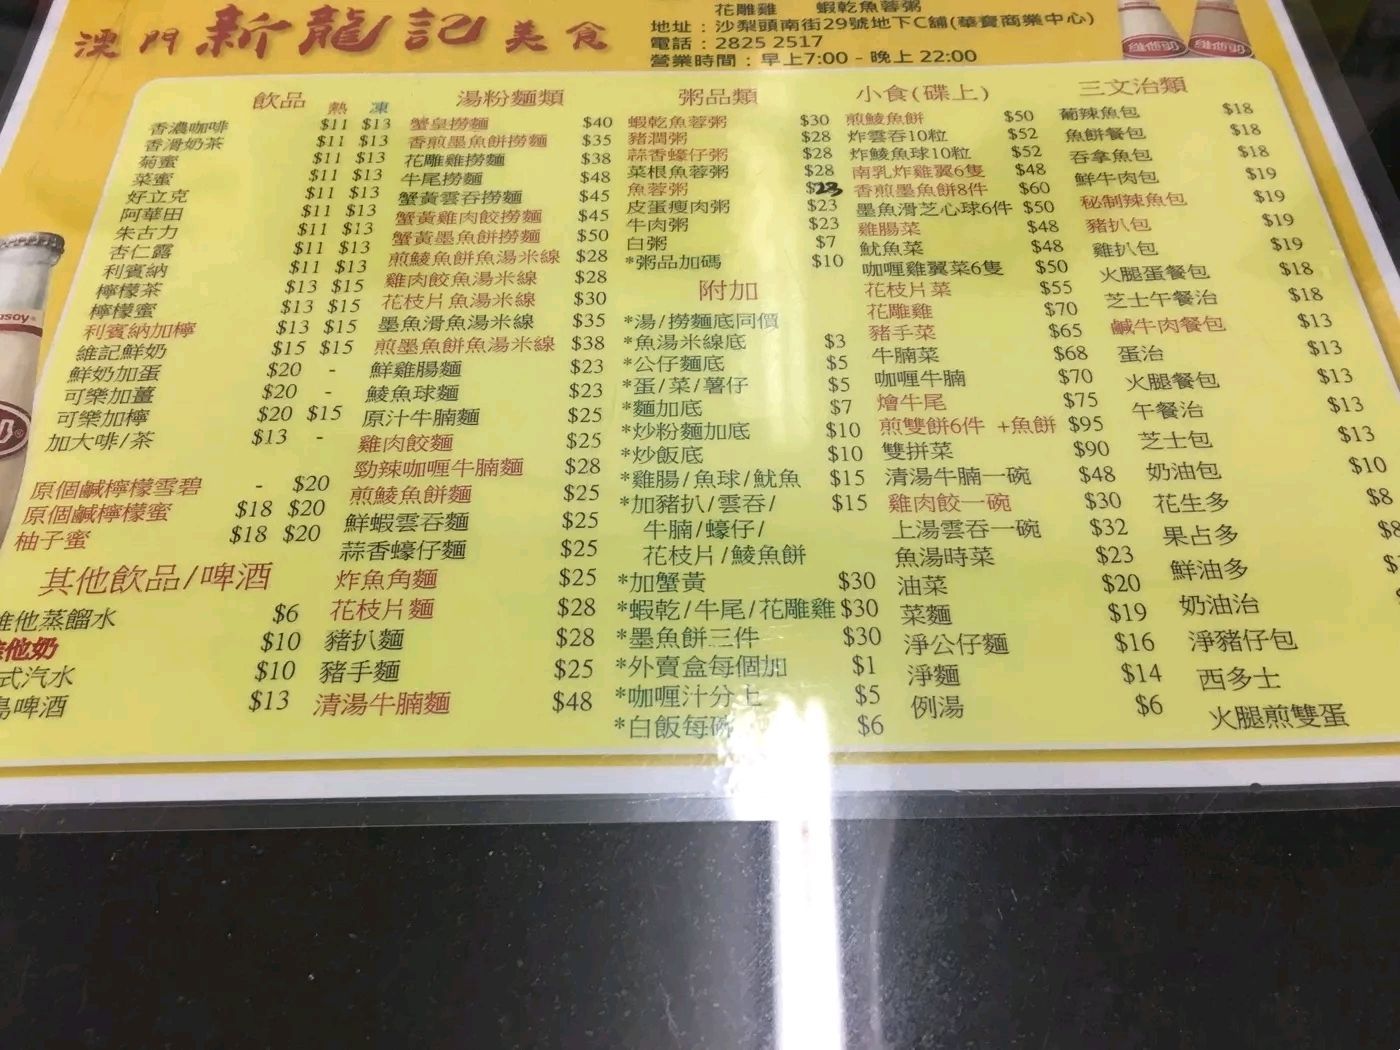 花雕雞 蝦乾魚蓉粥
澳門新龍記美食
地址：沙梨頭南街29號地下C舖(華寶商業中心)
電話：2825 2517
營業時間：早上7:00 - 晚上 22:00
維他奶 維他奶
飲品 熱 凍
香濃咖啡 $11 $13
香滑奶茶 $11 $13
菊蜜 $11 $13
菜蜜 $11 $13
好立克 $11 $13
阿華田 $11 $13
朱古力 $11 $13
杏仁露 $11 $13
利賓納 $11 $13
檸檬茶 $13 $15
檸檬蜜 $13 $15
利賓納加檸 $13 $15
維記鮮奶 $15 $15
鮮奶加蛋 $20 -
可樂加薑 $20 -
可樂加檸 $20 $15
加大啡/茶 $13 -
原個鹹檸檬雪碧 - $20
原個鹹檸檬蜜 $18 $20
柚子蜜 $18 $20
其他飲品/啤酒
維他蒸餾水 $6
維他奶 $10
式汽水 $10
島啤酒 $13
湯粉麵類
蟹皇撈麵 $40
香煎墨魚餅撈麵 $35
花雕雞撈麵 $38
牛尾撈麵 $48
蟹黃雲吞撈麵 $45
蟹黃雞肉餃撈麵 $45
蟹黃墨魚餅撈麵 $50
煎鯪魚餅魚湯米線 $28
雞肉餃魚湯米線 $28
花枝片魚湯米線 $30
墨魚滑魚湯米線 $35
煎墨魚餅魚湯米線 $38
鮮雞腸麵 $23
鯪魚球麵 $23
原汁牛腩麵 $25
雞肉餃麵 $25
勁辣咖喱牛腩麵 $28
煎鯪魚餅麵 $25
鮮蝦雲吞麵 $25
蒜香蠔仔麵 $25
炸魚角麵 $25
花枝片麵 $28
豬扒麵 $28
豬手麵 $25
清湯牛腩麵 $48
粥品類
蝦乾魚蓉粥 $30
豬潤粥 $28
蒜香蠔仔粥 $28
菜根魚蓉粥 $28
魚蓉粥 $23
皮蛋瘦肉粥 $23
牛肉粥 $23
白粥 $7
*粥品加碼 $10
附加
*湯/撈麵底同價
*魚湯米線底 $3
*公仔麵底 $5
*蛋/菜/薯仔 $5
*麵加底 $7
*炒粉麵加底 $10
*炒飯底 $10
*雞腸/魚球/魷魚 $15
*加豬扒/雲吞/ $15
牛腩/蠔仔/
花枝片/鯪魚餅
*加蟹黃 $30
*蝦乾/牛尾/花雕雞 $30
*墨魚餅三件 $30
*外賣盒每個加 $1
*咖喱汁分上 $5
*白飯每碗 $6
小食(碟上)
煎鯪魚餅 $50
炸雲吞10粒 $52
炸鯪魚球10粒 $52
南乳炸雞翼6隻 $48
香煎墨魚餅8件 $60
墨魚滑芝心球6件 $50
雞腸菜 $48
魷魚菜 $48
咖喱雞翼菜6隻 $50
花枝片菜 $55
花雕雞 $70
豬手菜 $65
牛腩菜 $68
咖喱牛腩 $70
燴牛尾 $75
煎雙餅6件 +魚餅 $95
雙拼菜 $90
清湯牛腩一碗 $48
雞肉餃一碗 $30
上湯雲吞一碗 $32
魚湯時菜 $23
油菜 $20
菜麵 $19
淨公仔麵 $16
淨麵 $14
例湯 $6
三文治類
葡辣魚包 $18
魚餅餐包 $18
吞拿魚包 $18
鮮牛肉包 $19
秘制辣魚包 $19
豬扒包 $19
雞扒包 $19
火腿蛋餐包 $18
芝士午餐治 $18
鹹牛肉餐包 $13
蛋治 $13
火腿餐包 $13
午餐治 $13
芝士包 $13
奶油包 $10
花生多 $8
果占多 $8
鮮油多 $
奶油治
淨豬仔包
西多士
火腿煎雙蛋